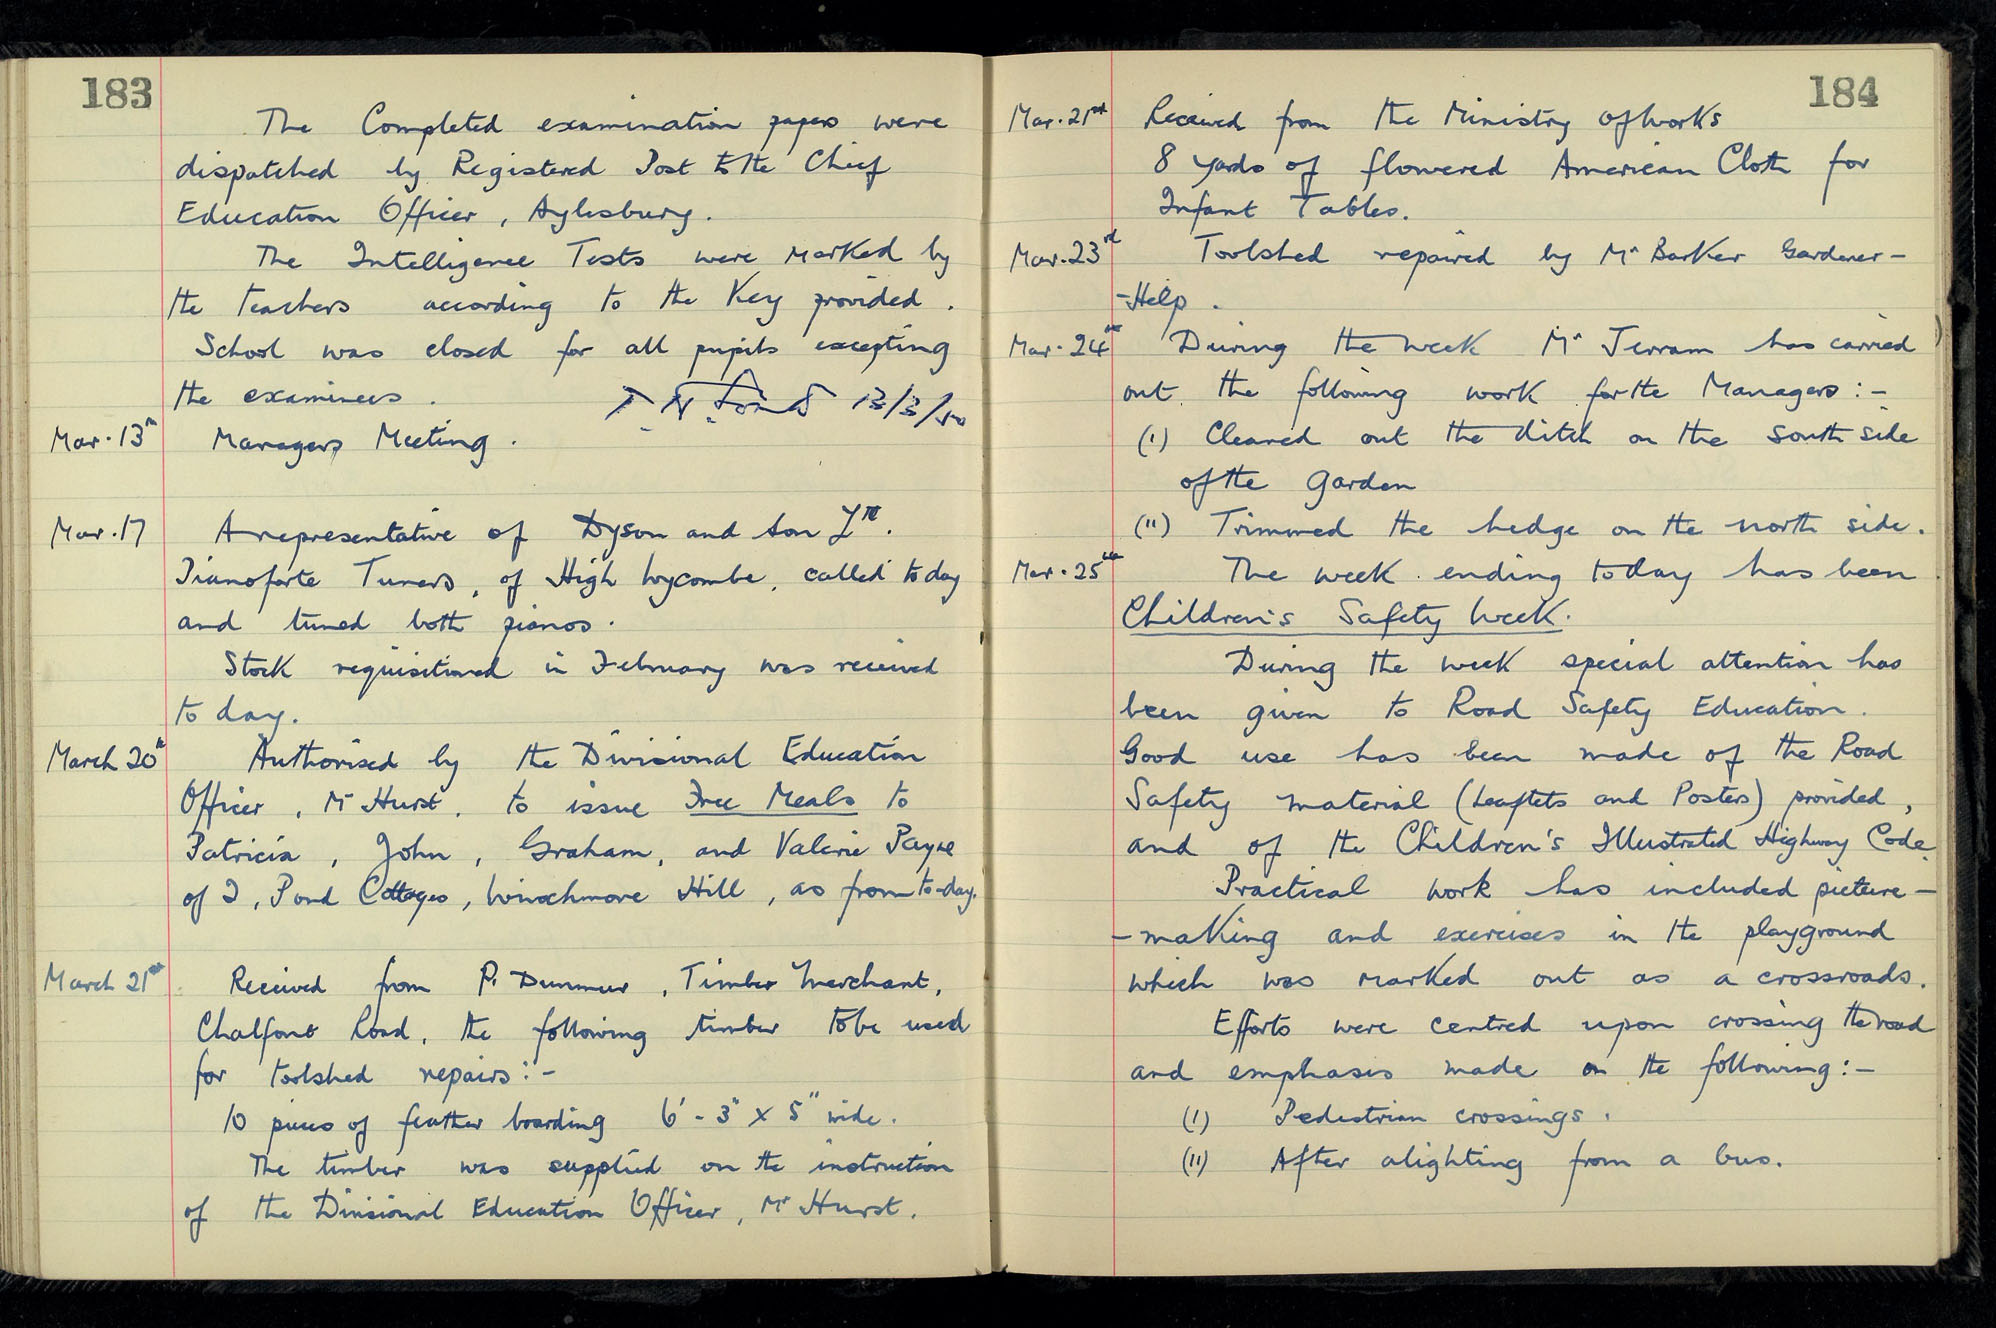 183
The Completed examination papers were
dispatched by Registered Post to the Chief
Education Officer, Aylesbury.
The Intelligence Tests were marked by
the teachers according to the Key provided.
School was closed for all pupils excepting
the examinees.
13/3/50
Mar. 13th Managers Meeting.
Mar. 17 A representative of Dyson and Son Ltd.
Pianoforte Tuners, of High Wycombe, called today
and tuned both pianos.
Stock requisitioned in February was received
to day.
March 20th Authorised by the Divisional Education
Officer, Mr Hurst, to issue Free Meals to
Patricia, John, Graham, and Valerie Payne
of 2, Pond Cottages, Winchmore Hill, as from to-day.
March 21st Received from P. Dummer, Timber Merchant,
Chalfont Road, the following timber to be used
for toolshed repairs:-
10 pieces of feather boarding 6'-3" x 5" wide.
The timber was supplied on the instruction
of the Divisional Education Officer, Mr Hurst.
184
Mar. 21st Received from the Ministry of Works
8 yards of flowered American Cloth for
Infant Tables.
Mar. 23rd Toolshed repaired by Mr Barker Gardener-
-Help.
Mar. 24th During the week Mr Jerram has carried
out the following work for the Managers:-
(i) Cleared out the ditch on the South side
of the garden
(ii) Trimmed the hedge on the north side.
Mar. 25th The week ending today has been
Children's Safety Week.
During the week special attention has
been given to Road Safety Education.
Good use has been made of the Road
Safety material (Leaflets and Posters) provided,
and of the Children's Illustrated Highway Code.
Practical work has included picture-
-making and exercises in the playground
which was marked out as a crossroads.
Efforts were centred upon crossing the road
and emphasis made on the following:-
(i) Pedestrian crossings.
(ii) After alighting from a bus.